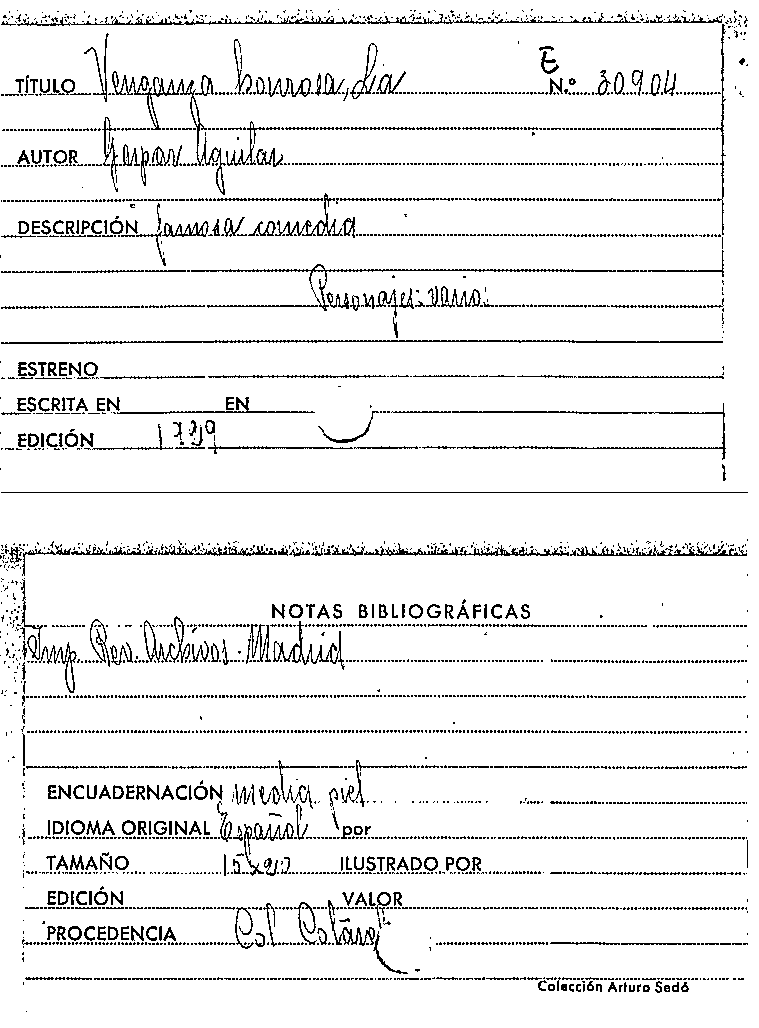 TÍTULO Venganza honrosa, La E N.º 30904
AUTOR Gaspar Aguilar
DESCRIPCIÓN famosa comedia
Personajes: varios
ESTRENO
ESCRITA EN EN
EDICIÓN
NOTAS BIBLIOGRÁFICAS
Imp. Rev. Archivos - Madrid
ENCUADERNACIÓN media piel
IDIOMA ORIGINAL Español por
TAMAÑO ILUSTRADO POR
EDICIÓN VALOR
PROCEDENCIA Col
Colección Arturo Sedó